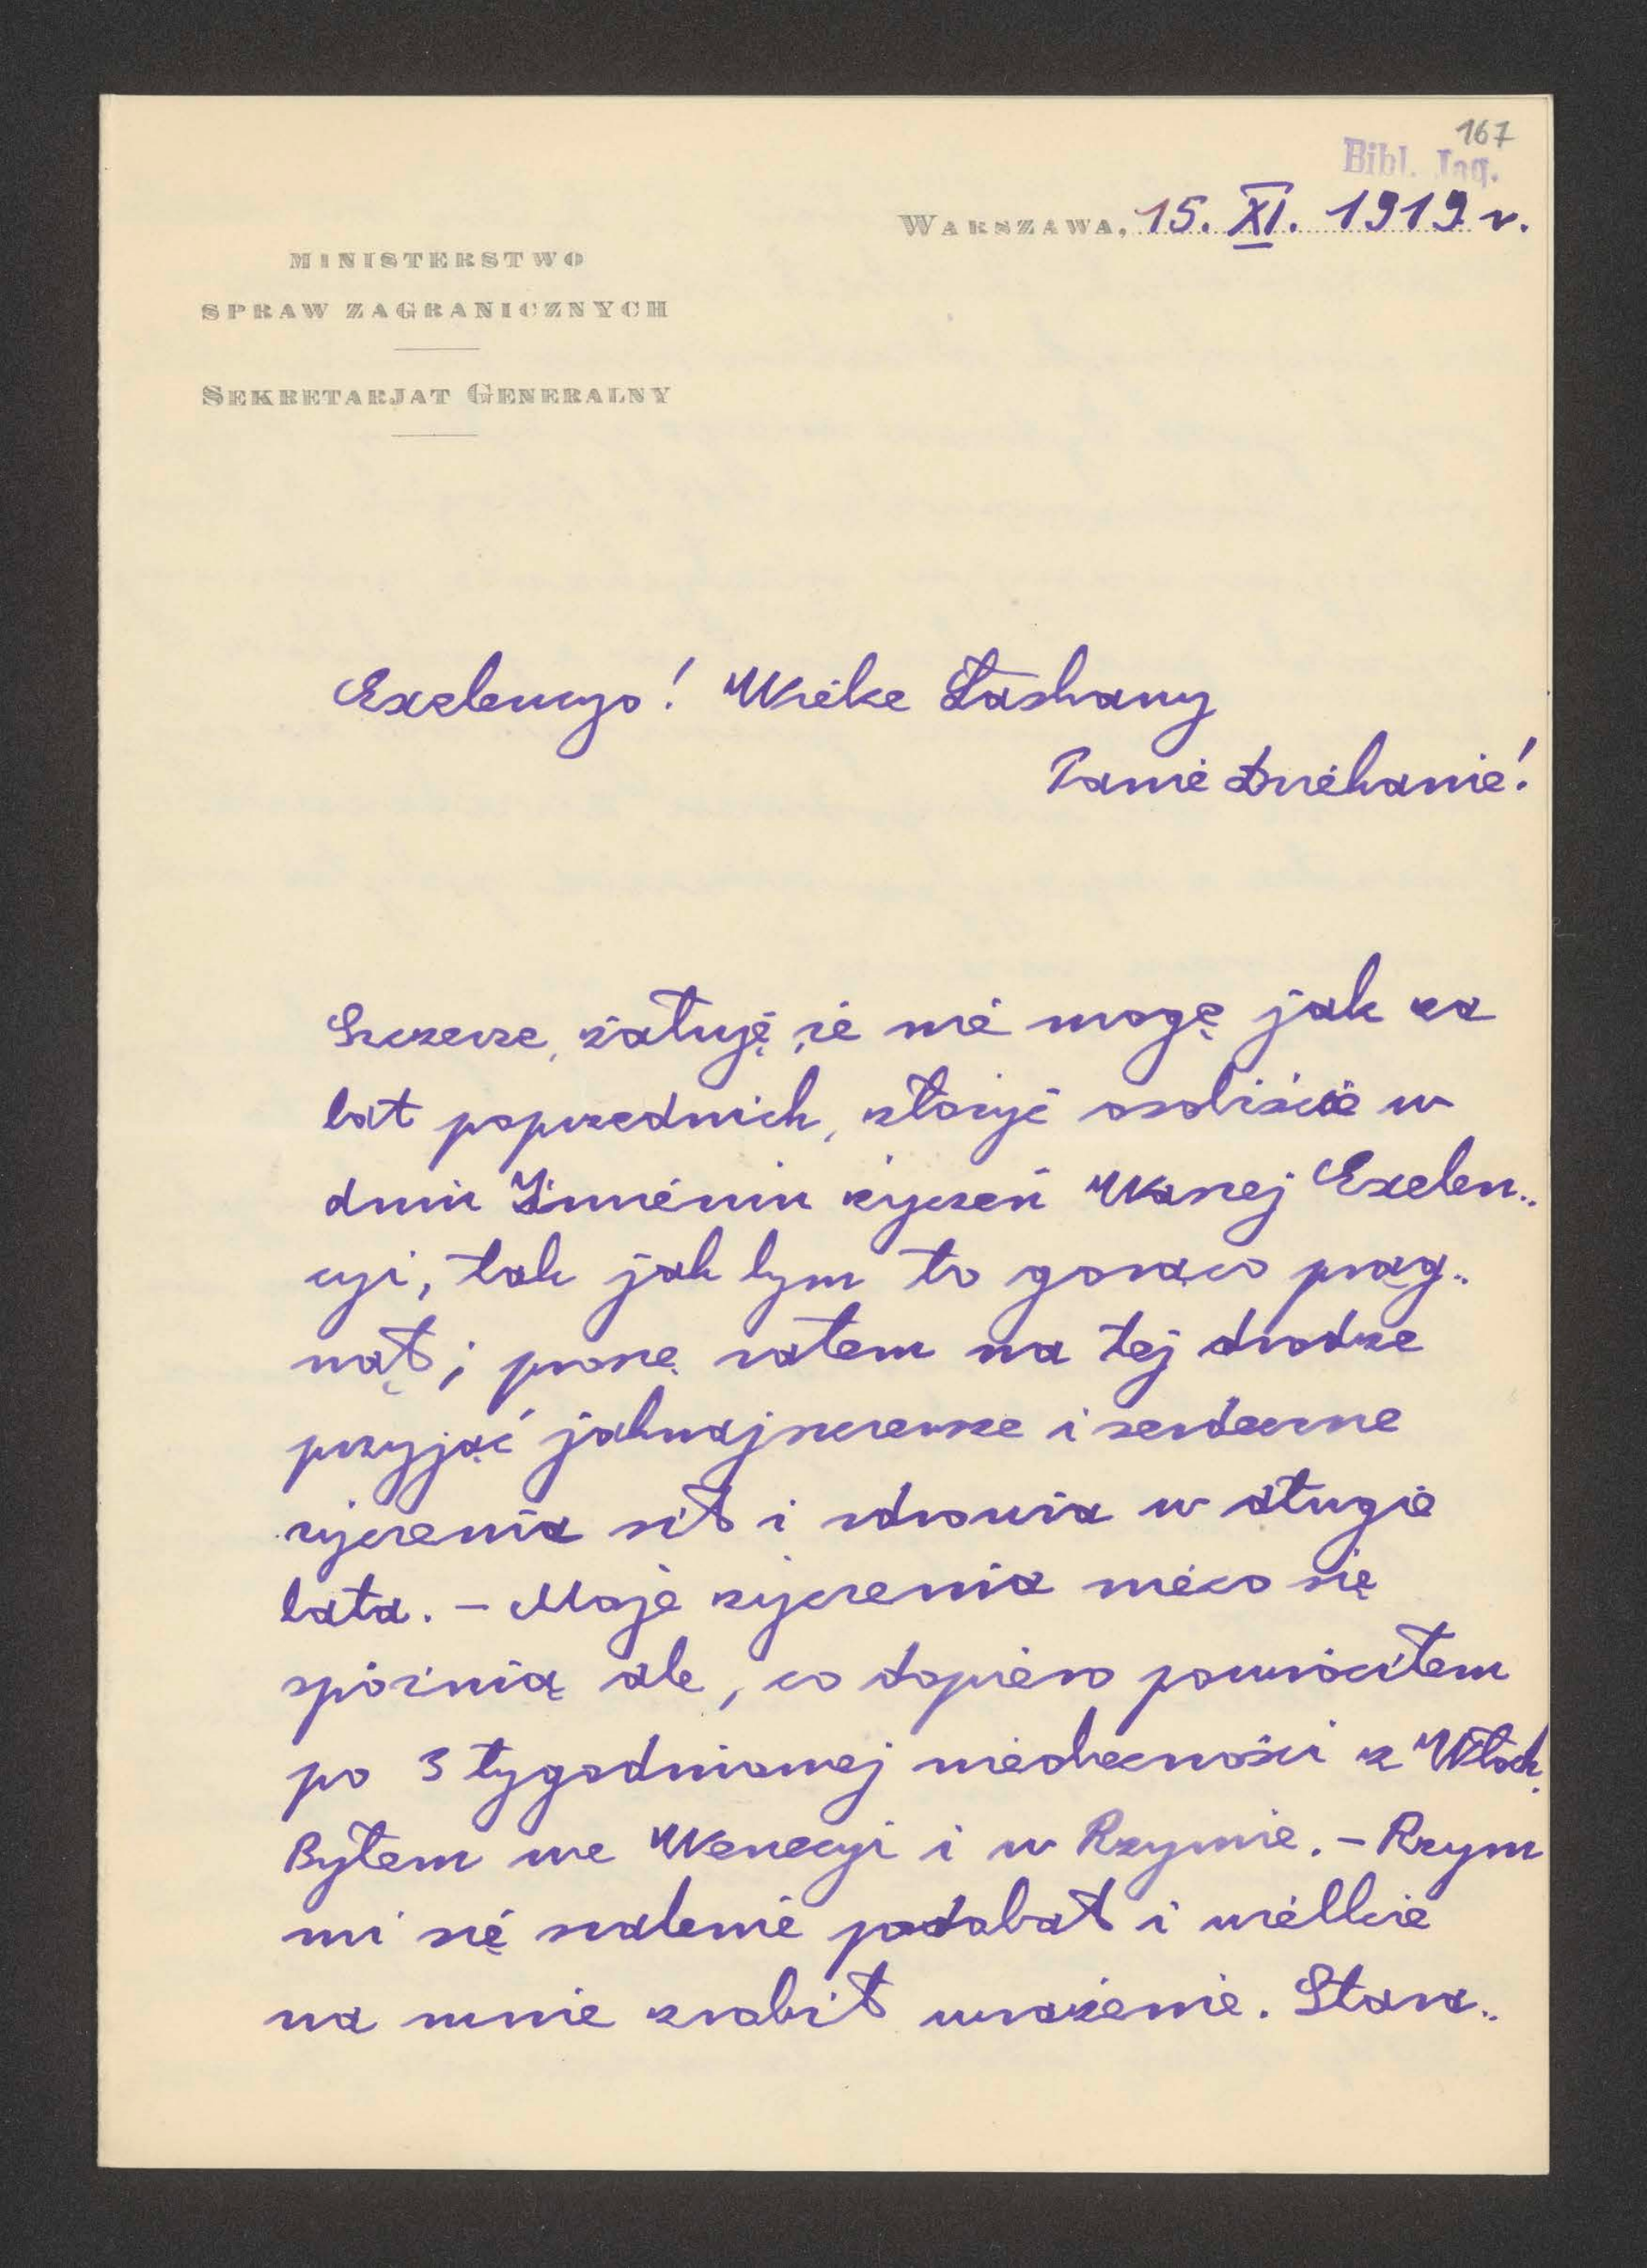 167
Bibl. Jag.
WARSZAWA, 15. XI. 1919 r.
MINISTERSTWO
SPRAW ZAGRANICZNYCH
SEKRETARJAT GENERALNY
Exelencyo! Wielce Łaskawy
Panie Dziekanie!
Szczerze, żałuję, że nie mogę jak za
lat poprzednich, złożyć osobiście w
dniu Imienin życzeń Waszej Exelen..
cyi, tak jak bym to gorąco prag..
nął; proszę zatem na tej drodze
przyjąć jaknajszczersze i serdeczne
życzenia sił i zdrowia w długie
lata. – Moje życzenia nieco się
spóźnią ale, co dopiero powróciłem
po 3 tygodniowej nieobecności z Włoch.
Byłem we Wenecyi i w Rzymie. – Rzym
mi się szalenie podobał i wielkie
na mnie zrobił wrażenie. Stara..